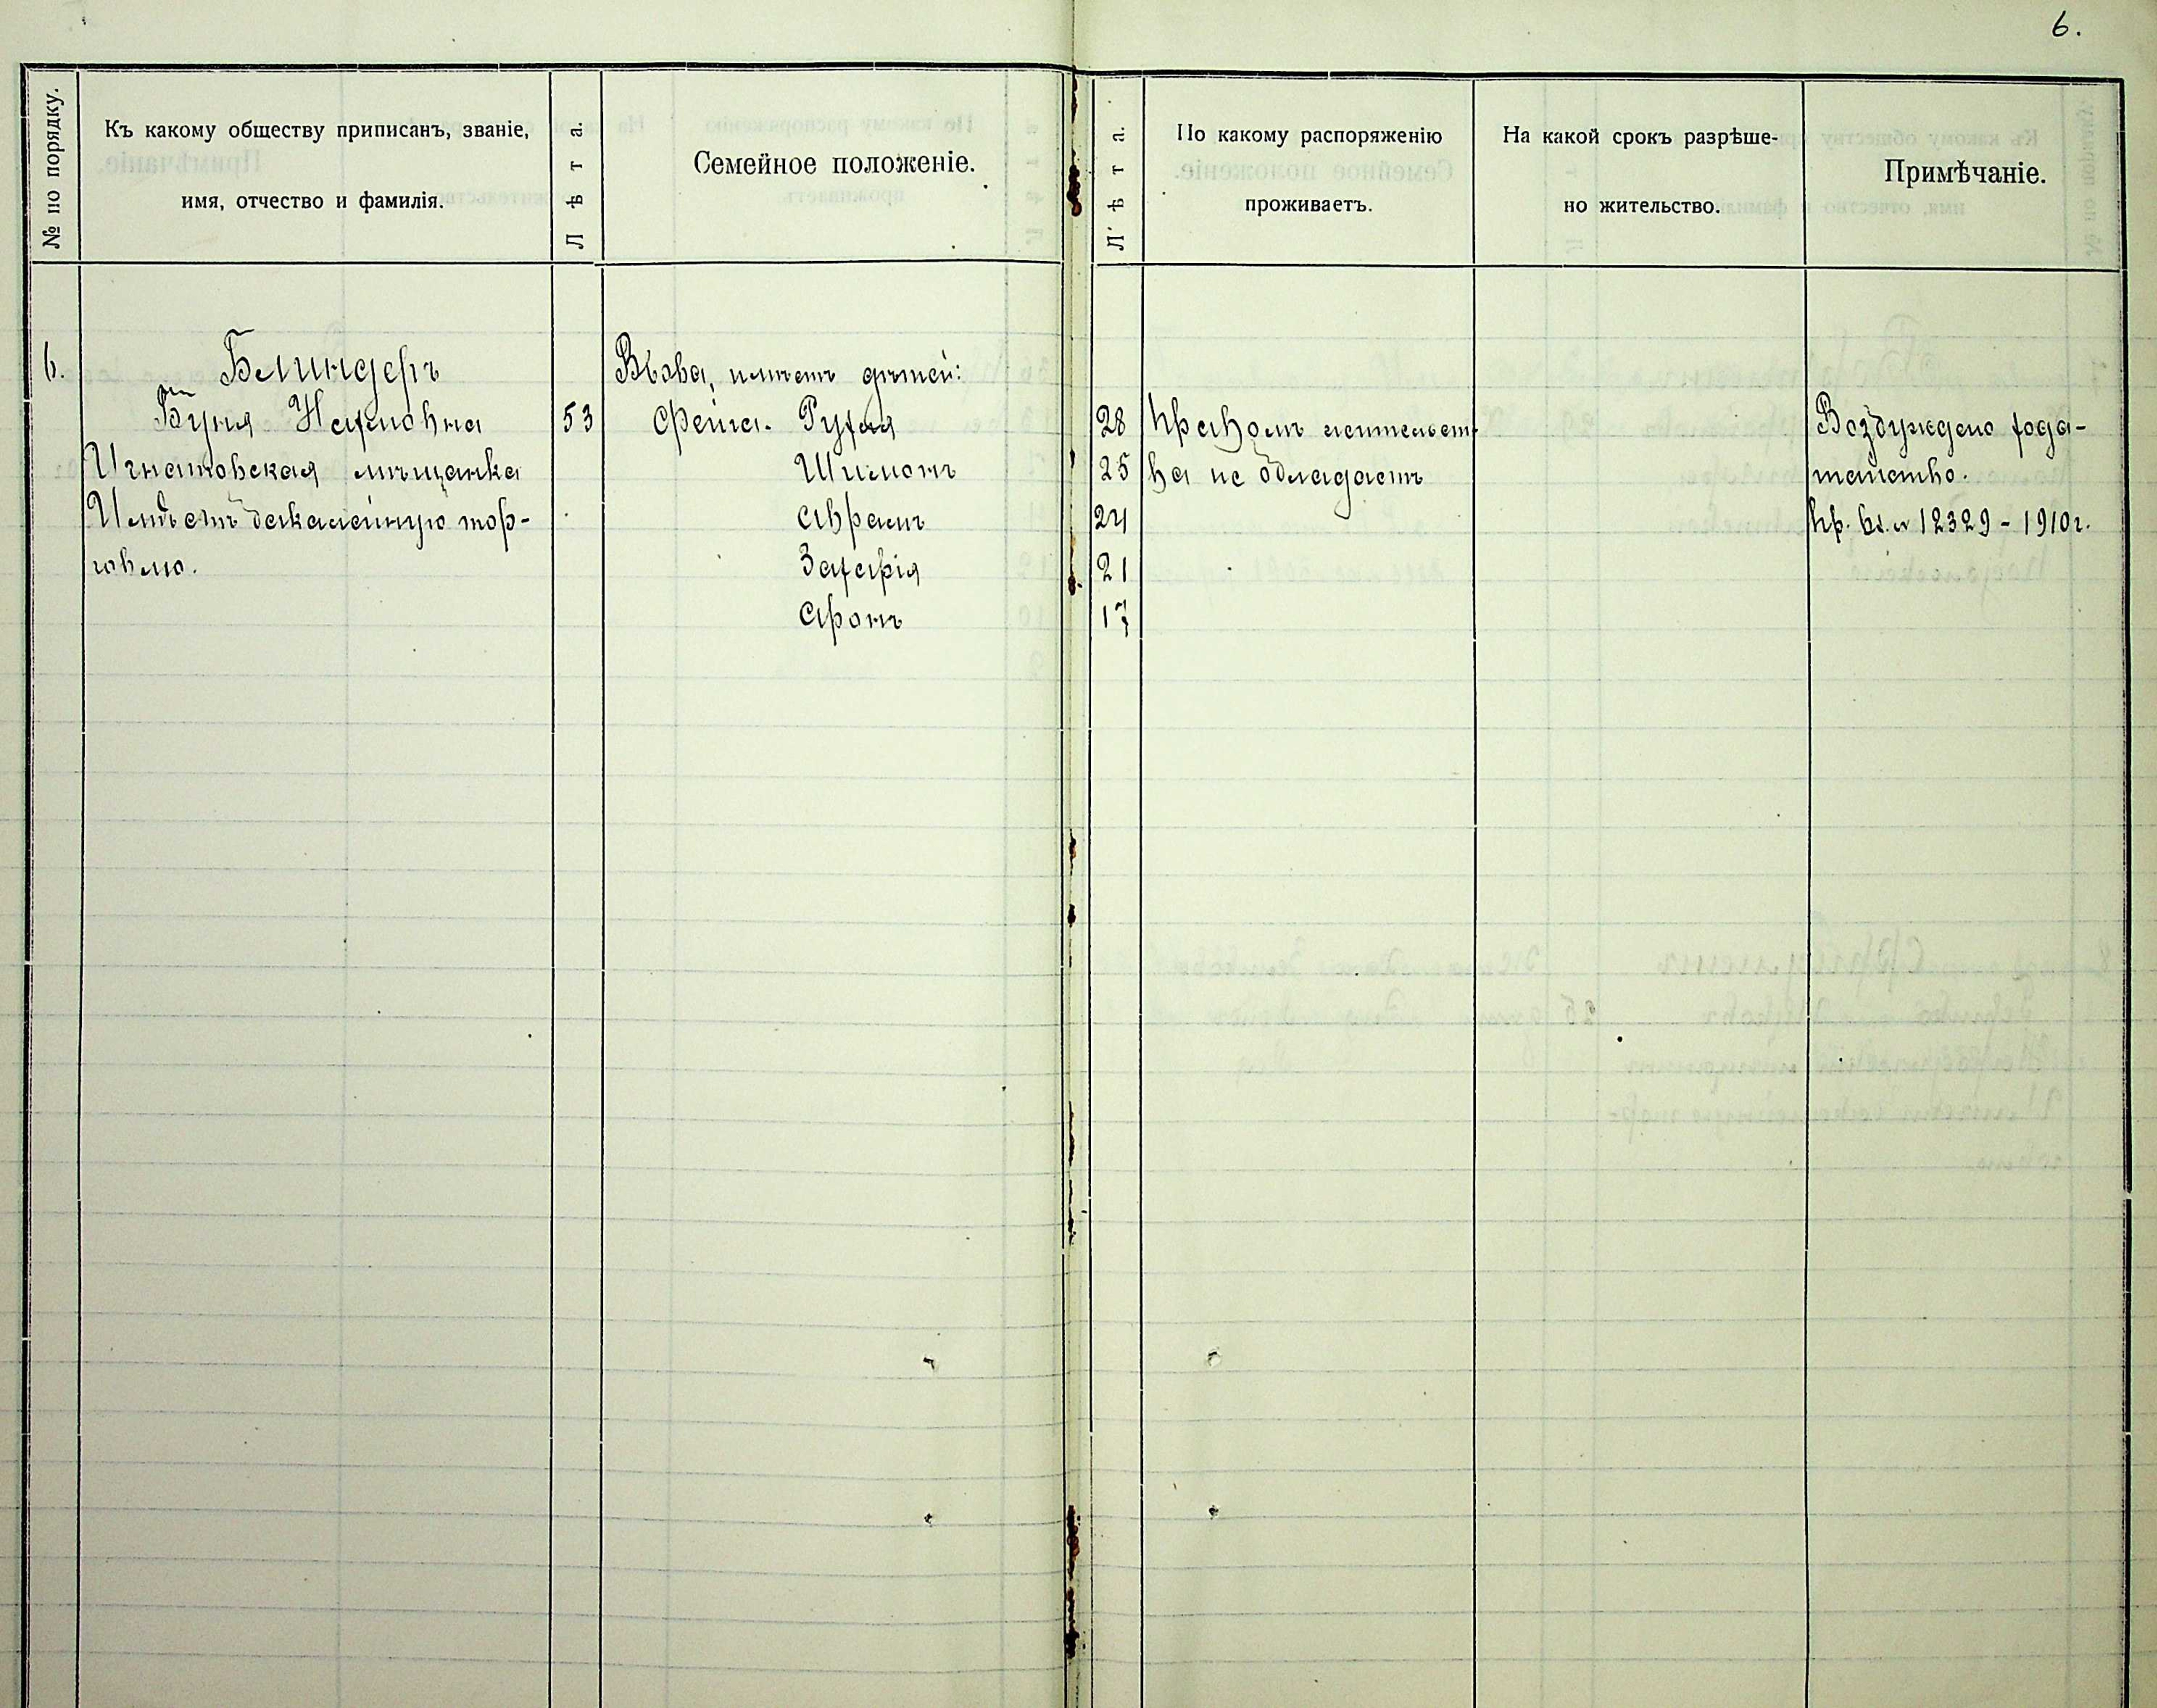 6.
№ по порядку.
Къ какому обществу приписанъ, званіе,
имя, отчество и фамилія.
Лѣта.
Семейное положеніе.
Лѣта.
По какому распоряженію
проживаетъ.
На какой срокъ разрѣше-
но жительство.
Примѣчаніе.
6.
Блиндеръ
Буня Нахмовна
Игнатовская мѣщанка
Имѣетъ бакалейную тор-
говлю.
53
Вдова, имѣетъ дѣтей:
Фейга-Рухля
Шимонъ
Аврамъ
Захарія
Аронъ
28
25
24
21
17
Правомъ жительст-
ва не обладаетъ
Возбуждено хода-
тайство.
Пр. Вх. № 12329 - 1910 г.